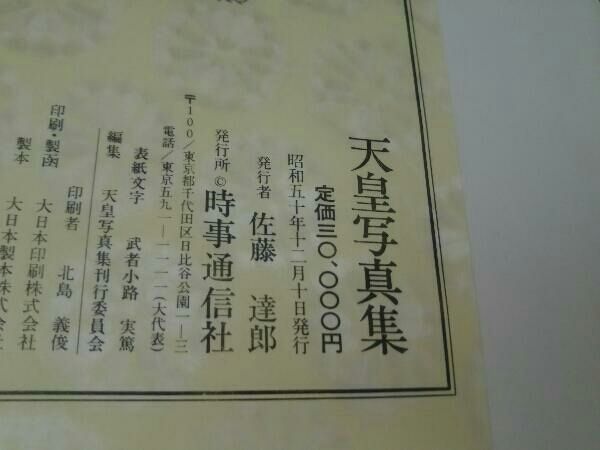 天皇写真集
定価三〇、〇〇〇円
昭和五十年十二月十日発行
発行者 佐藤 達郎
発行所 © 時事通信社
〒100/東京都千代田区日比谷公園一―三
電話/東京五九一―一一一一(大代表)
表紙文字 武者小路 実篤
編集 天皇写真集刊行委員会
印刷者 北島 義俊
印刷・製函 大日本印刷株式会社
製本 大日本製本株式会社